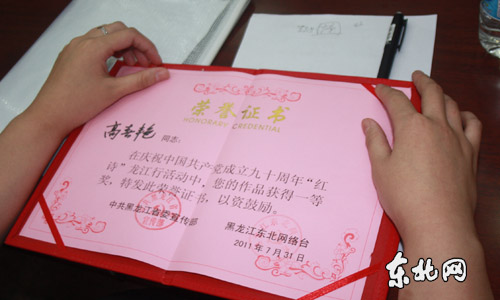 荣誉证书
HONORARY CREDENTIAL
高春艳 同志：
在庆祝中国共产党成立九十周年“红
诗”龙江行活动中，您的作品获得一等
奖，特发此荣誉证书，以资鼓励。
中共黑龙江省委宣传部 黑龙江东北网络台
2011年7月31日
东北网